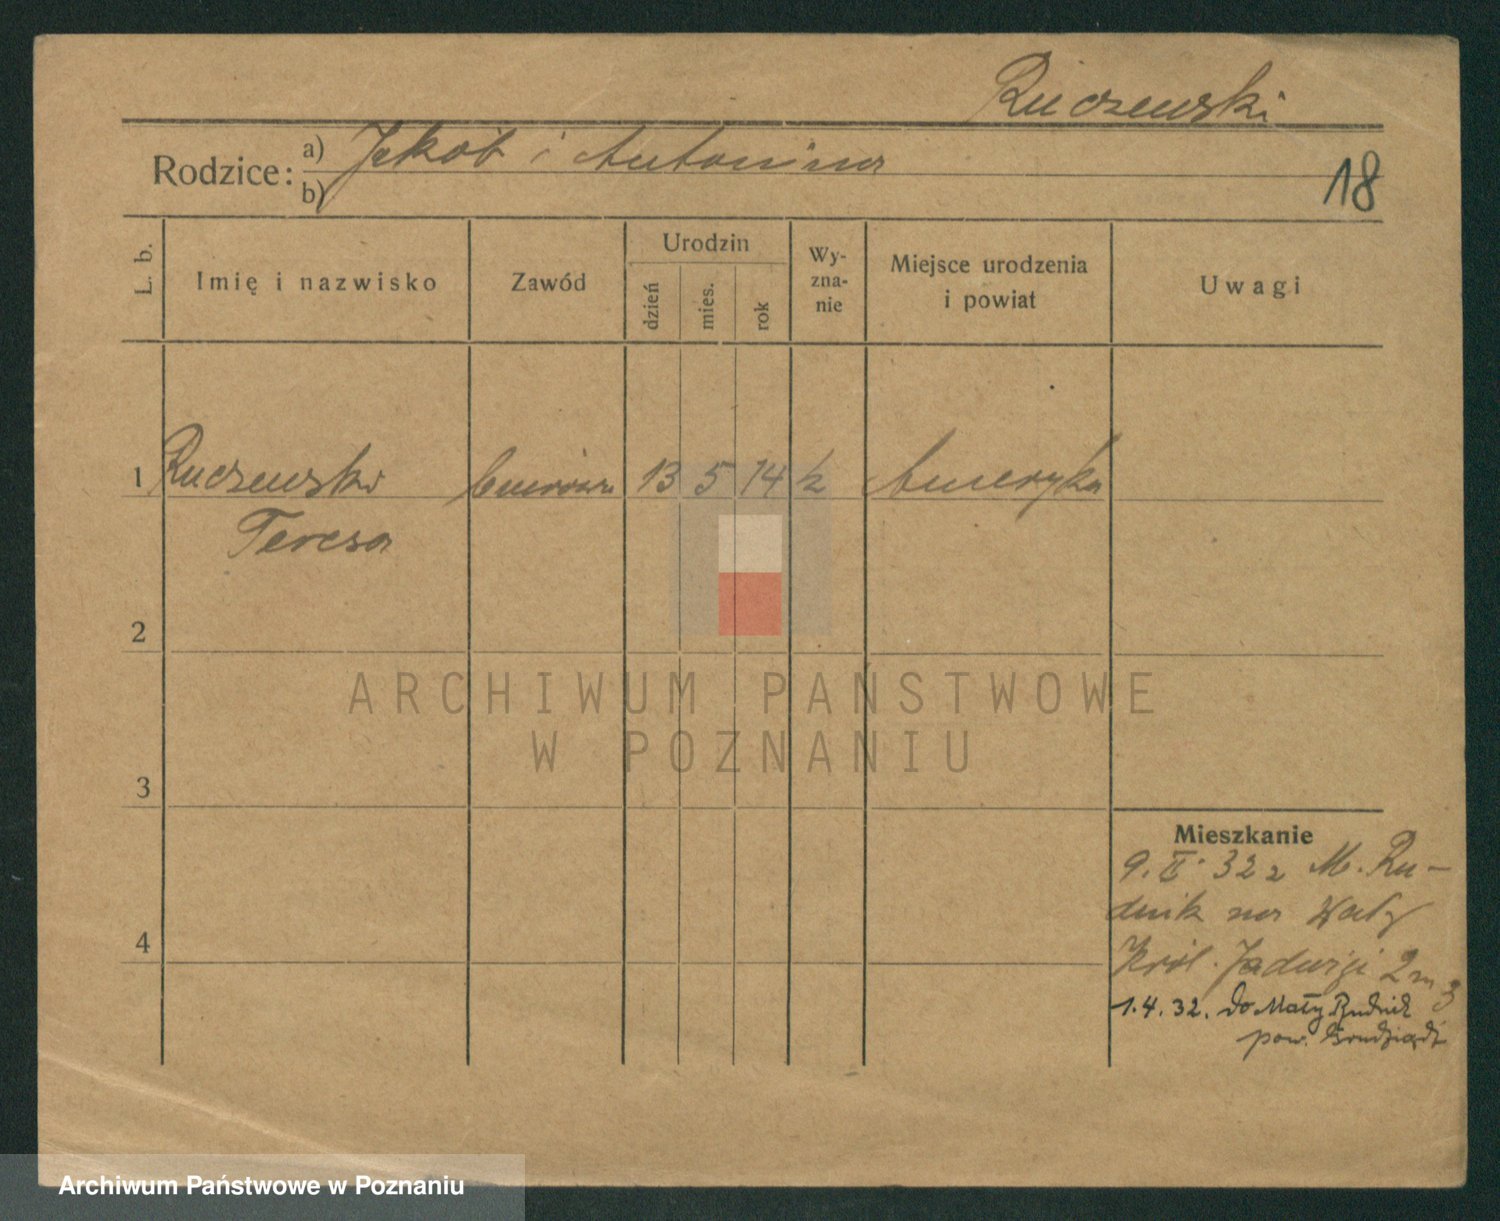 Ruczewski
Rodzice: a) Jakób i Antonina
b)
18
L. b. Imię i nazwisko Zawód Urodzin dzień mies. rok Wy-zna-nie Miejsce urodzenia i powiat Uwagi
1 Ruczewska 13 5 14 k Ameryka
Teresa
2
ARCHIWUM PAŃSTWOWE
W POZNANIU
3
Mieszkanie
9. II. 32 z M. Ru-
dnik na Wały
4
Król. Jadwigi 2 m 3
1.4.32. do Mały Rudnik
pow. Grudziądz
Archiwum Państwowe w Poznaniu